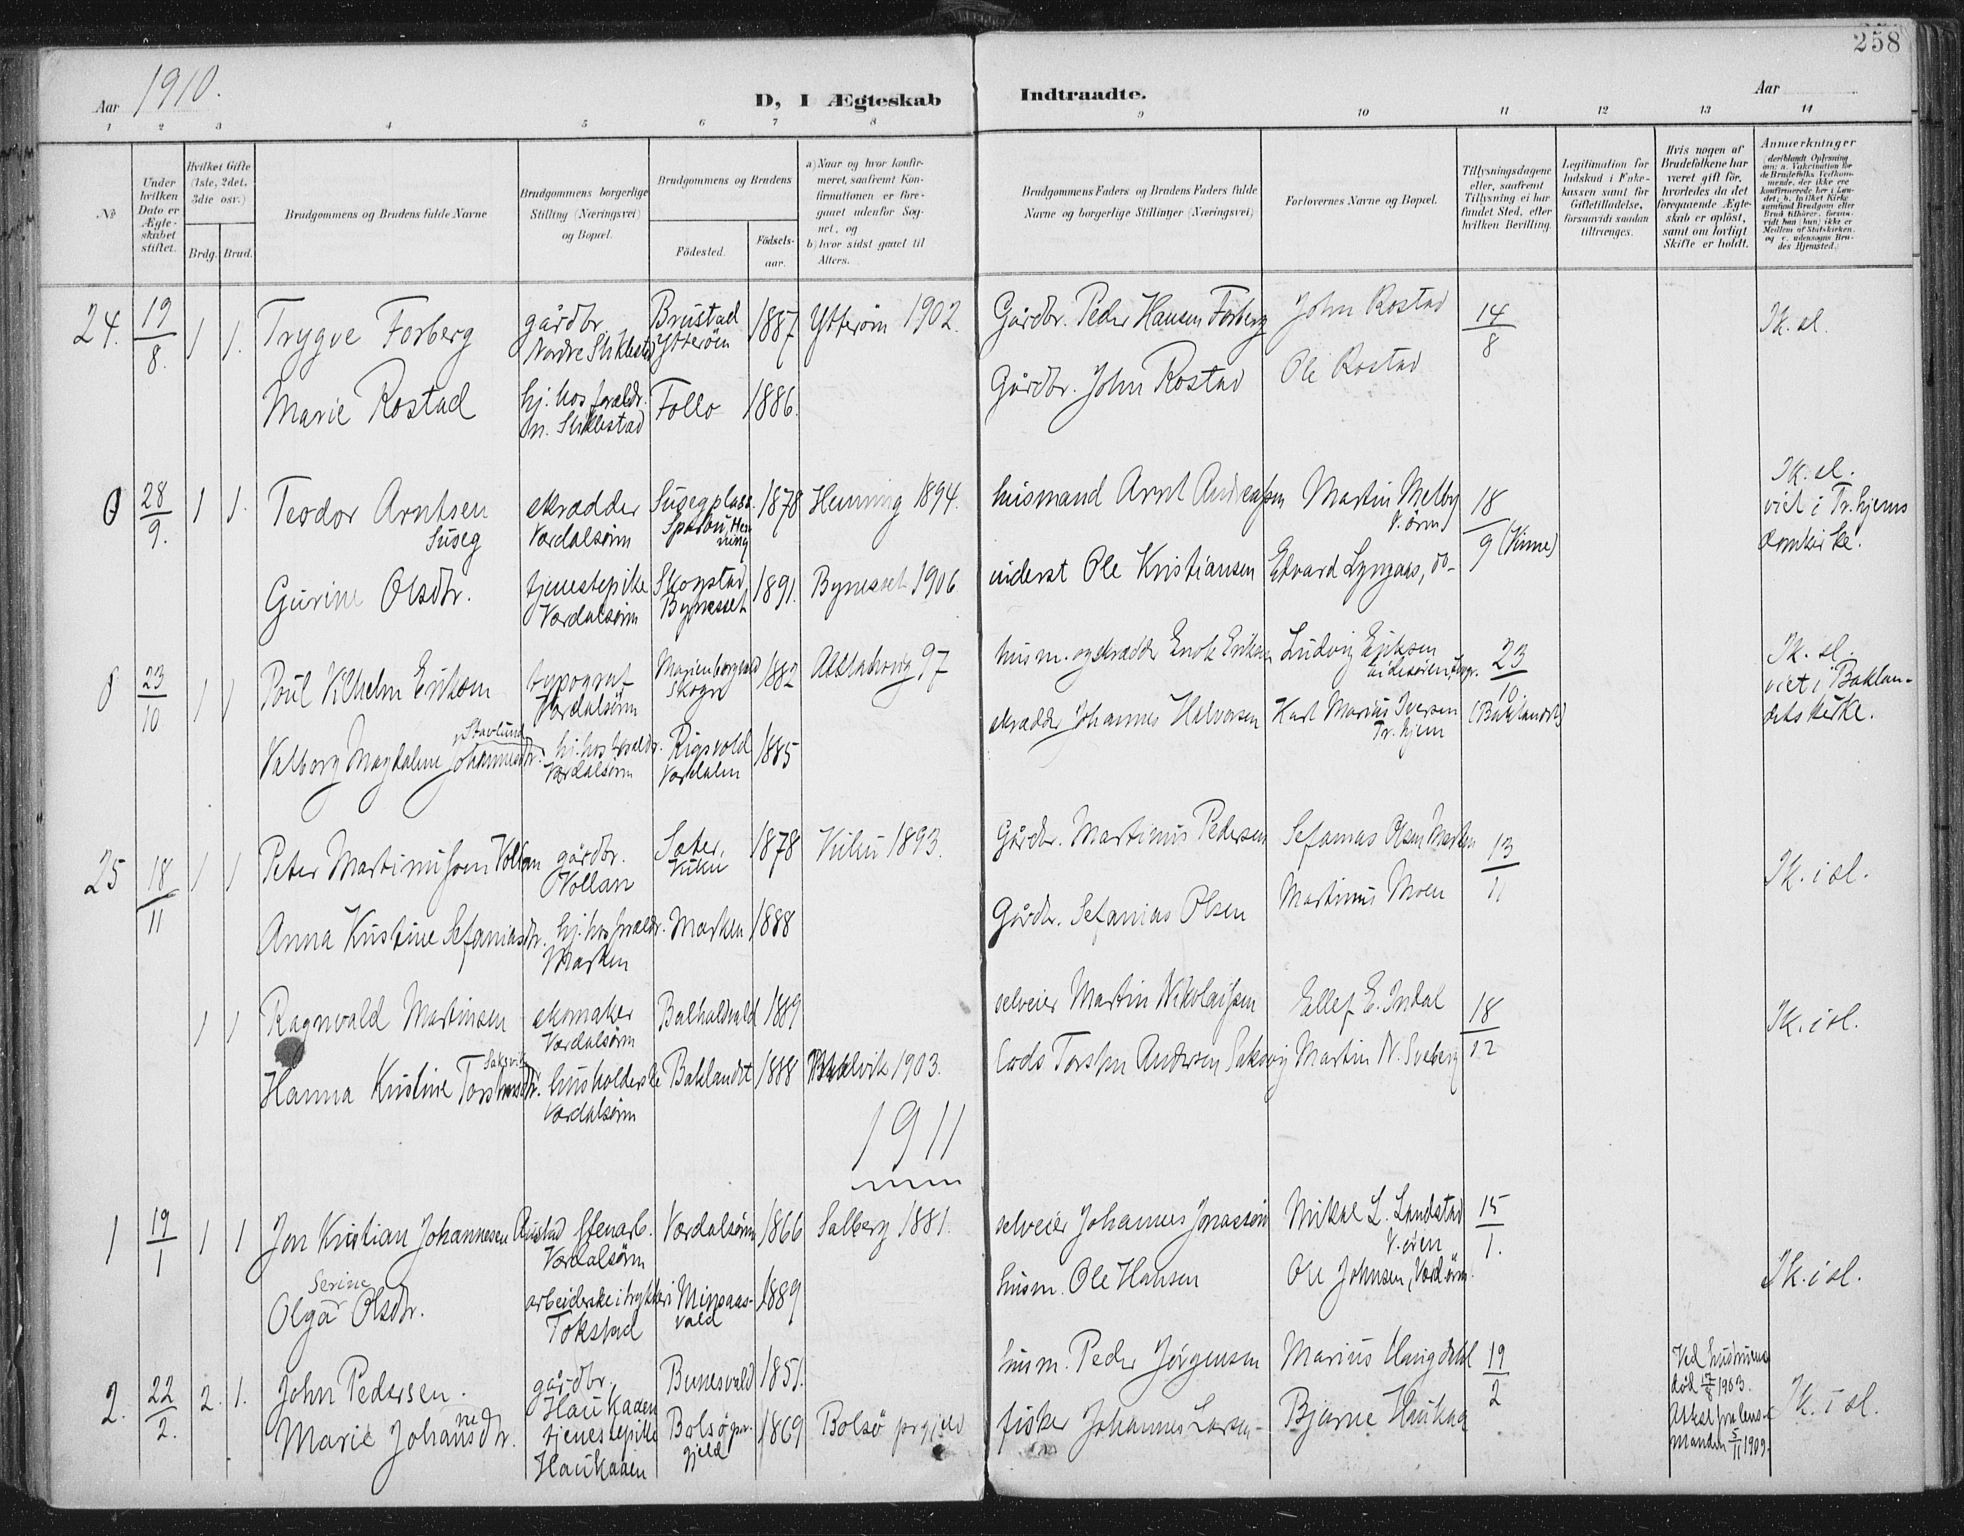 258
Aar 1910.
D, I Ægteskab Indtraadte.
Aar
1 2 3 4 5 6 7 8 9 10 11 12 13 14
№
Under hvilken Dato er Ægteskabet stiftet.
Hvilket Gifte (1ste, 2det, 3die osv.)
Brdg. Brud.
Brudgommens og Brudens fulde Navne
Brudgommens borgerlige Stilling (Næringsvei) og Bopæl.
Brudgommens og Brudens
Fødested. Fødselsaar.
a) Naar og hvor konfirmeret, saafremt Konfirmationen er foregaaet udenfor Sognet, og
b) hvor sidst gaaet til Alters.
Brudgommens Faders og Brudens Faders fulde Navne og borgerlige Stillinger (Næringsvei)
Forlovernes Navne og Bopæl.
Tillysningsdagene eller, saafremt Tillysning ei har fundet Sted, efter hvilken Bevilling.
Legitimation for Indskud i Enkekassen samt for Giftetilladelse, forsaavidt saadan tiltrænges.
Hvis nogen af Brudefolkene har været gift før, hvorledes da det foregaaende Ægteskab er opløst, samt om lovligt Skifte er holdt.
Anmærkninger
24. 19/8. 1 1. Trygve Forberg gårdbr. Brustad 1887 Ytterøin 1902. Gårdbr. Peder Hansen Forberg John Rostad 14/8 Ik. sl.
Nordre Stiklestad Ytterøin
Marie Rostad hj. hos foreldr. Follo 1886. Gårdbr. John Rostad Ole Rostad
n. Stiklestad
0 28/9. 1 1. Teodor Arntsen skrædder Susegplass 1878 Henning 1894. husmand Arnt Andreassen Martin Melby 18/9 (Vinne) Ik. sl.
Suseg Værdalsørin Sparbu, Henning V. ørin viet i Tr.hjems domkirke.
Gurine Olsdtr. tjenestepike Skogstad 1891. Bynesset 1906 inderst Ole Kristiansen Edvard Lyngaas, do-
Værdalsørin Bynesset
0 23/10 1 1 Poul Vilhelm Eriksen typograf Marienborgvald 1882 Alstahoug 97 husm. og skrædder Enok Eriksen Ludvig Eriksen 23/10. Ik. sl.
Værdalsørin Skogn (Baklandet) viet i Baklandets kirke.
Stavlund
Valborg Magdalene Johannesdtr. hj. hos foreldr. Rigsvold 1885 skrædder Johannes Halvorsen Karl Marius Iversen
Værdalsørin Værdalen Tr. hjem
25 18/11 1 1 Peter Martinussen Vollan gårdbr. Sæter, 1878 Vuku 1893. Gårdbr. Martinus Pedersen Sefanias Olsen Marken 13/11 Ik. i sl.
Vollan Vuku
Anna Kristine Sefaniasdtr. hj. hos foreldr. Marken 1888 Gårdbr. Sefanias Olsen Martinus Moen
Marken
1 1 Ragnvald Martinsen skomaker 1889 selveier Martin Nikolaissen Ellef E. Indal 18/12 Ik. i sl.
Værdalsørin
Saksvik
Hanna Kristine Torstensdtr. husholderske Baklandet 1888 1903. Lods Torsten Andersen Saksvig Martin N. Sveberg
Værdalsørin
1911
1 19/1 1 1 Jon Kristian Johannesen Austad Stenarb. Værdalsørin 1866 Salberg 1881. selveier Johannes Jonassen Mikal L. Landstad 15/1. Ik. i sl.
Værdalsørin V. ørin
Serine
Olga Olsdtr. arbeiderske i trykkeri Minsaasvald 1889 husm. Ole Hansen Ole Johnsen, Værd.ørin.
Tokstad
2. 22/2. 2. 1. John Pedersen. gårdbr. Bunesvald 1851. husm. Peder Jørgensen Marius Haugdahl 19/2 Ved hustruens død 17/8 1903. Ik. i sl.
Haukaaen
Marie Johannedtr. tjenestepike Bolsø pr.gjeld 1869 Bolsø prgjeld fisker Johannes Larsen Bjarne Haukaa Attest fra lensmanden 5/11 1909.
Haukaaen